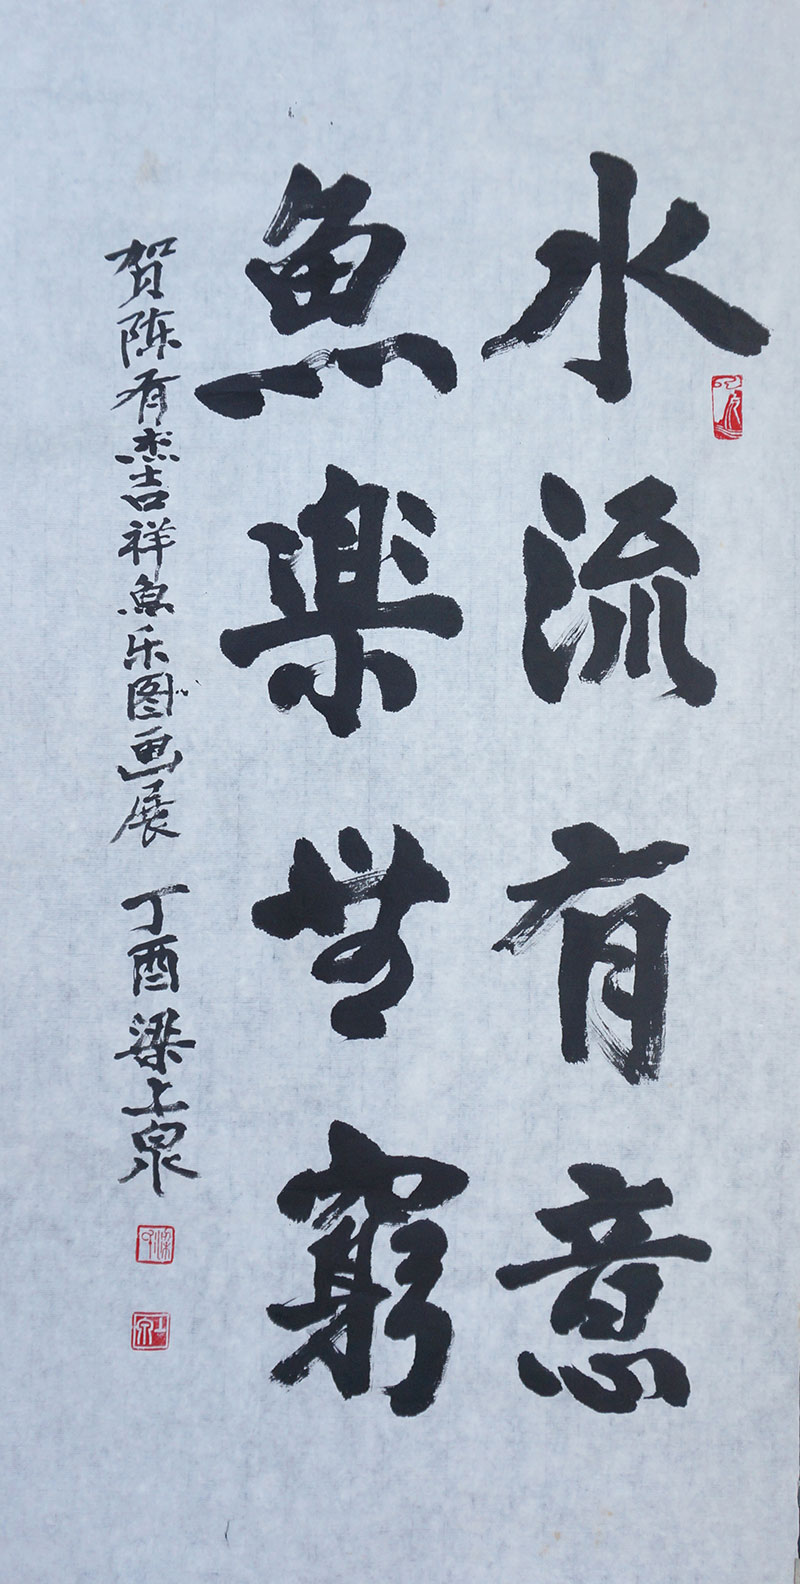 水流有意
魚楽無窮
贺陈有杰吉祥魚乐图画展 丁酉梁上泉